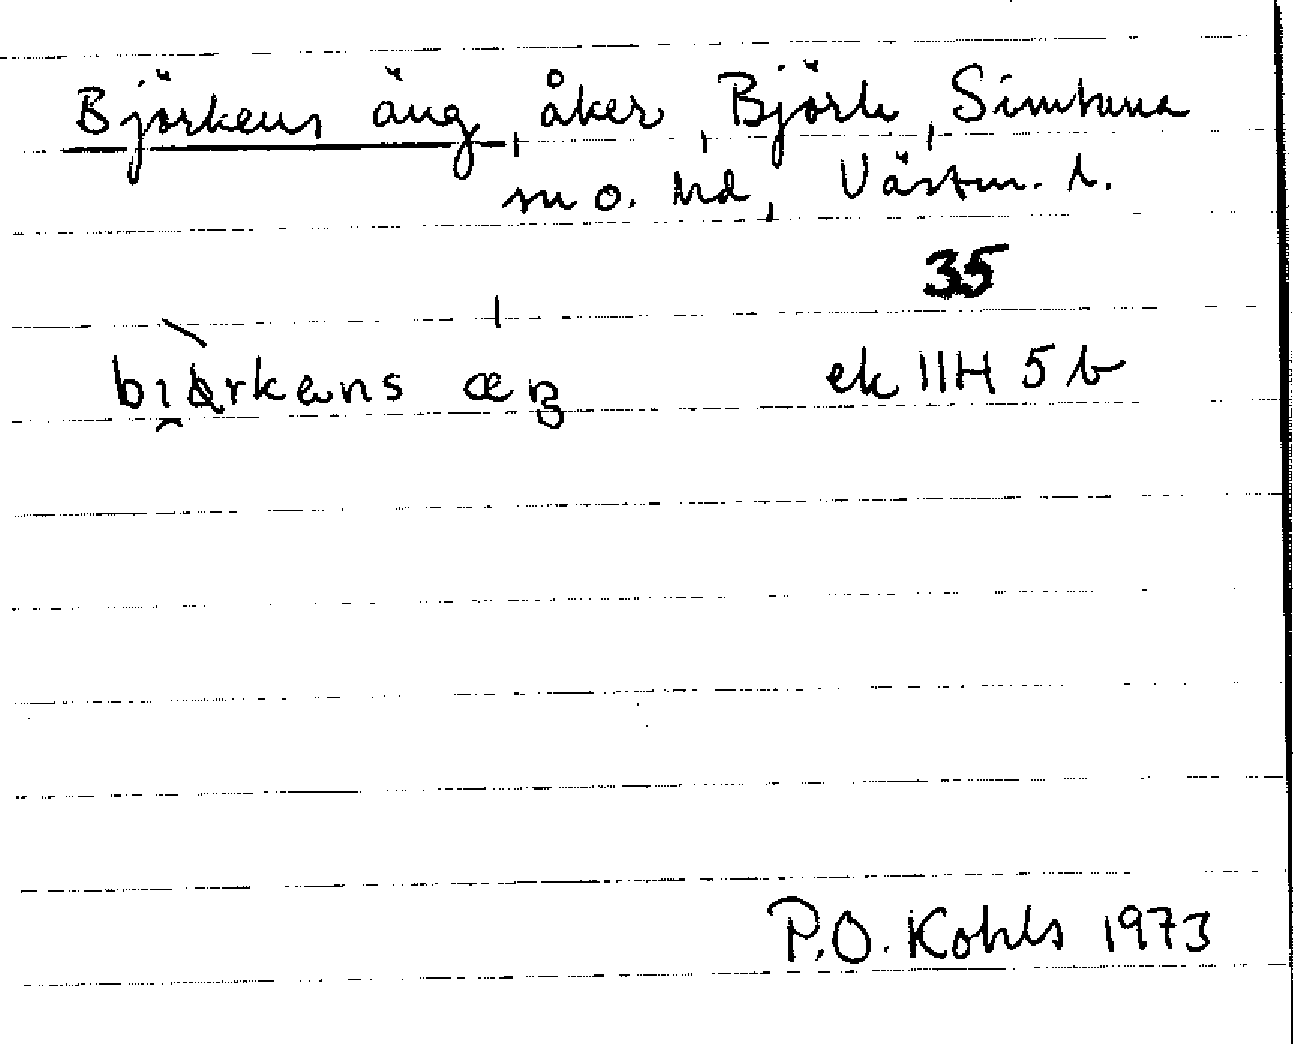 Björkens äng, åker, Björk, Simtuna
sn o. hd, Västm. l.
35
ek 11H 5 b
P.O. Kohls 1973